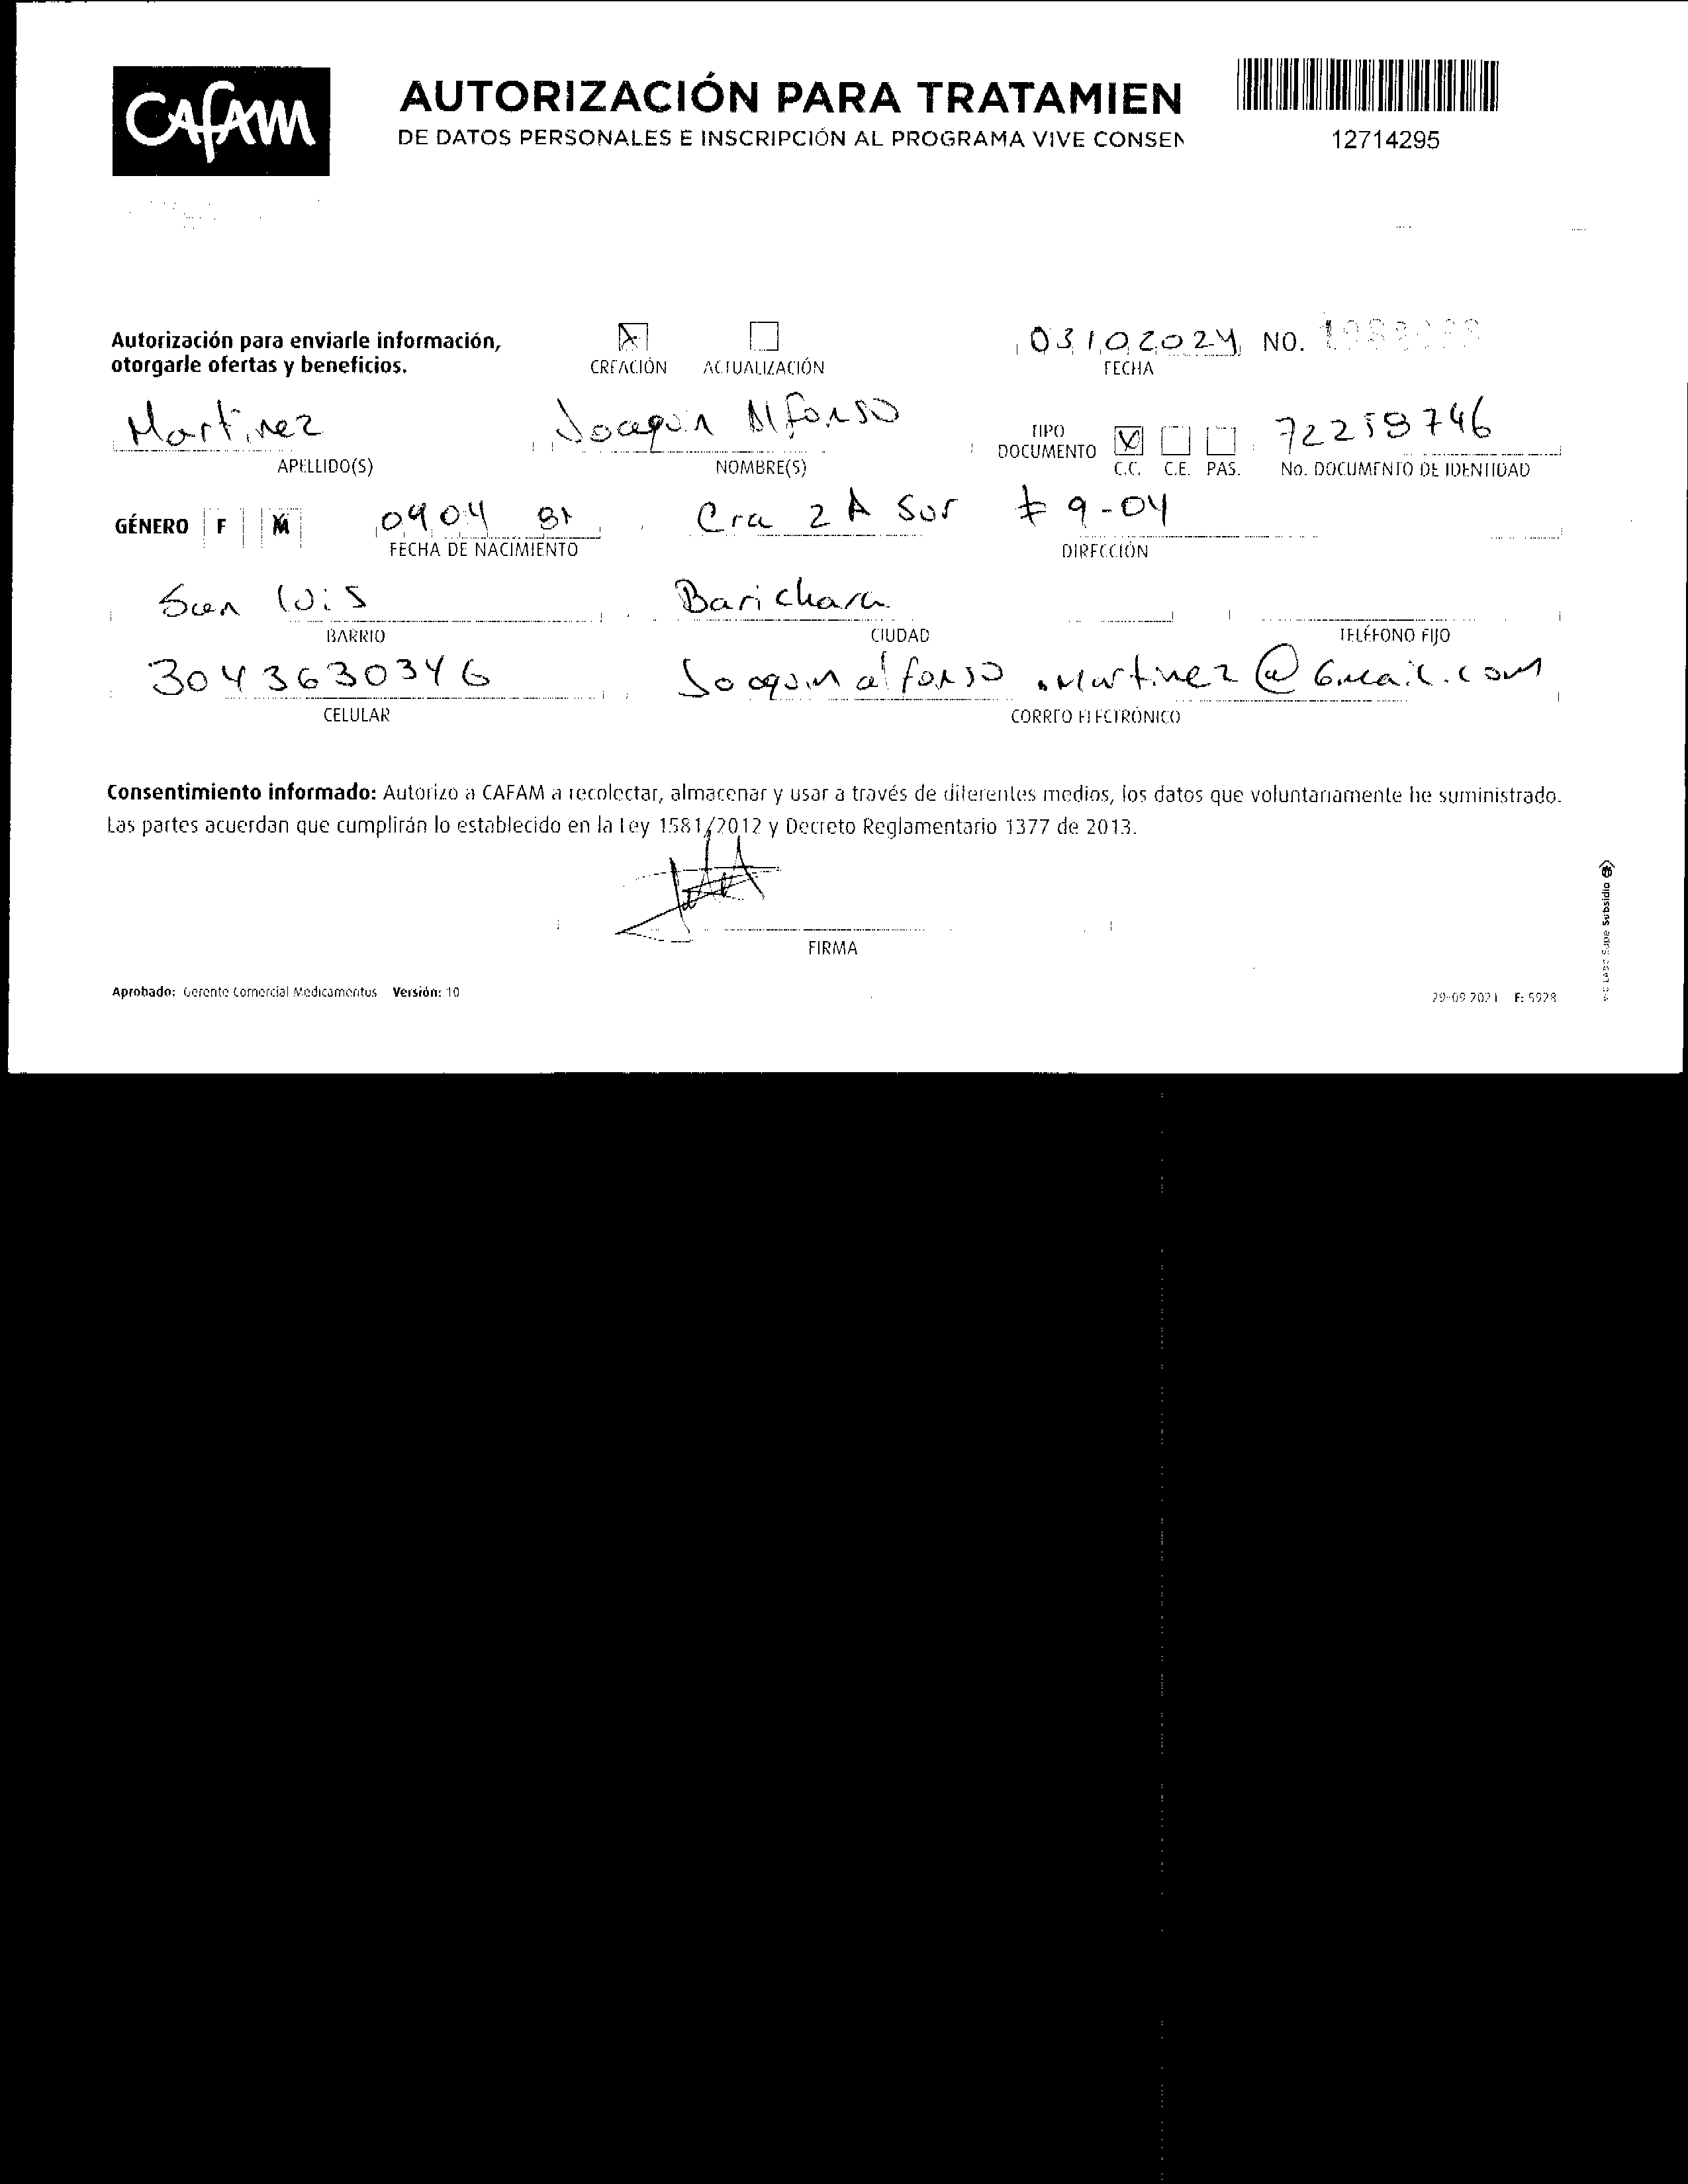 CAFAM
AUTORIZACIÓN PARA TRATAMIEN
DE DATOS PERSONALES E INSCRIPCIÓN AL PROGRAMA VIVE CONSEN
12714295
Autorización para enviarle información,
otorgarle ofertas y beneficios.
CREACIÓN ACTUALIZACIÓN
03102024 NO.
FECHA
Martinez Joaquin Alfonso
APELLIDO(S) NOMBRE(S)
TIPO DOCUMENTO C.C. C.E. PAS. 72258746
No. DOCUMENTO DE IDENTIDAD
GÉNERO F M 0904 81 Cra 2 A Sur # 9-04
FECHA DE NACIMIENTO DIRECCIÓN
San Luis Barichara
BARRIO CIUDAD TELÉFONO FIJO
3043630346 Joaquinalfonso.Martinez@Gmail.com
CELULAR CORREO ELECTRÓNICO
Consentimiento informado: Autorizo a CAFAM a recolectar, almacenar y usar a través de diferentes medios, los datos que voluntariamente he suministrado.
Las partes acuerdan que cumplirán lo establecido en la Ley 1581/2012 y Decreto Reglamentario 1377 de 2013.
FIRMA
Aprobado: Gerente Comercial Medicamentos Versión: 10
29-09-2021 F: 5928